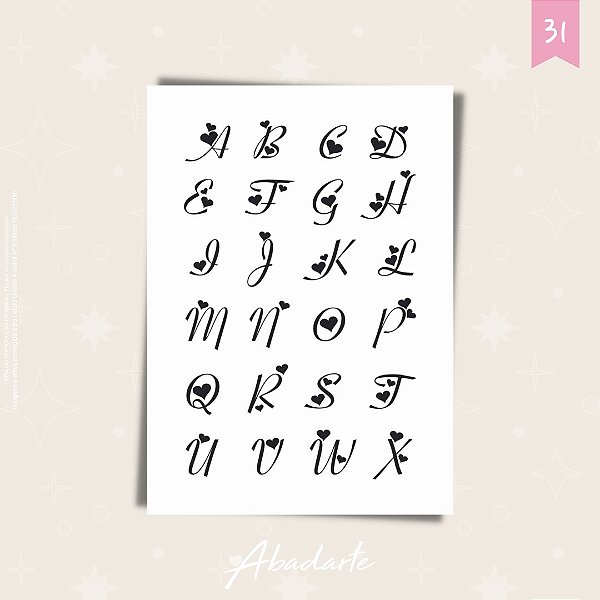 31
A B C D
E F G H
I J K L
M N O P
Q R S T
U V W X
Abadarte